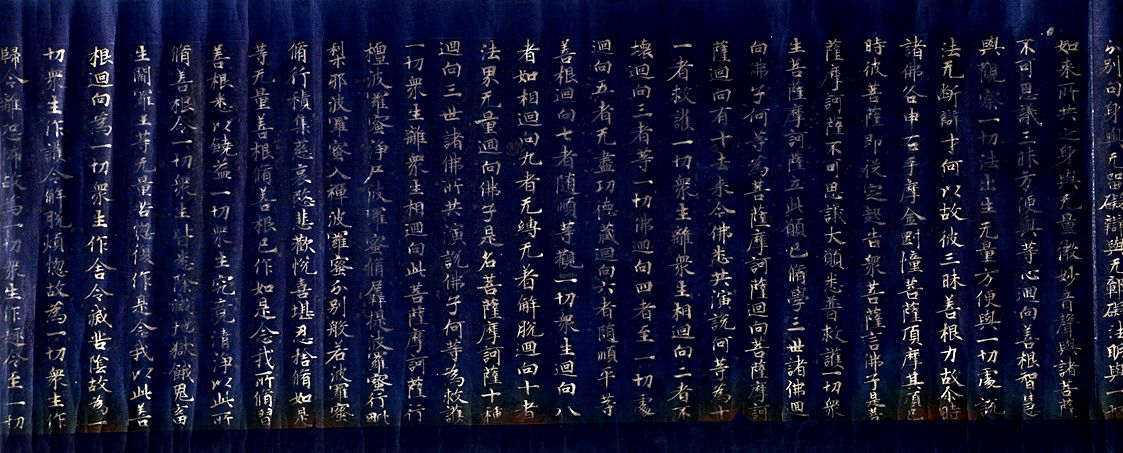 分別句身與无罣礙辯與无鄣礙法明與一切
如來所共之身與无量微妙音聲與諸菩薩
不可思議三昧方便與等心迴向善根智慧
與觀察一切法出生无量方便與一切處說
法无斷辯才何以故彼三昧善根力故尒時
諸佛各申右手摩金剛幢菩薩頂摩其頂已
時彼菩薩即從定起告衆菩薩言佛子是菩
薩摩訶薩不可思議大願悉普救護一切衆
生菩薩摩訶薩立此願已脩學三世諸佛迴
向佛子何等為菩薩摩訶薩迴向菩薩摩訶
薩迴向有十去來今佛悉共演說何等為十
一者救護一切衆生離衆生相迴向二者不
壞迴向三者等一切佛迴向四者至一切處
迴向五者无盡功德藏迴向六者随順平等
善根迴向七者随順等觀一切衆生迴向八
者如相迴向九者无縛无著解脫迴向十者
法界无量迴向佛子是名菩薩摩訶薩十種
迴向三世諸佛所共演說佛子何等為救護
一切衆生離衆生相迴向此菩薩摩訶薩行
檀波羅蜜淨尸波羅蜜脩羼提波羅蜜行毗
梨耶波羅蜜入禪波羅蜜分別般若波羅蜜
脩行積集慈哀愍悲歡悅喜堪忍捨脩如是
等无量善根脩善根已作如是念我所脩習
善根悉以饒益一切衆生究竟清淨以此所
脩善根令一切衆生皆悉除滅地獄餓鬼畜
生閻羅王等无量苦惱復作是念我以此善
根迴向為一切衆生作舍令滅苦陰故為一
切衆生作護令解脫煩惱故為一切衆生作
歸令離恐怖故為一切衆生作趣令至一切